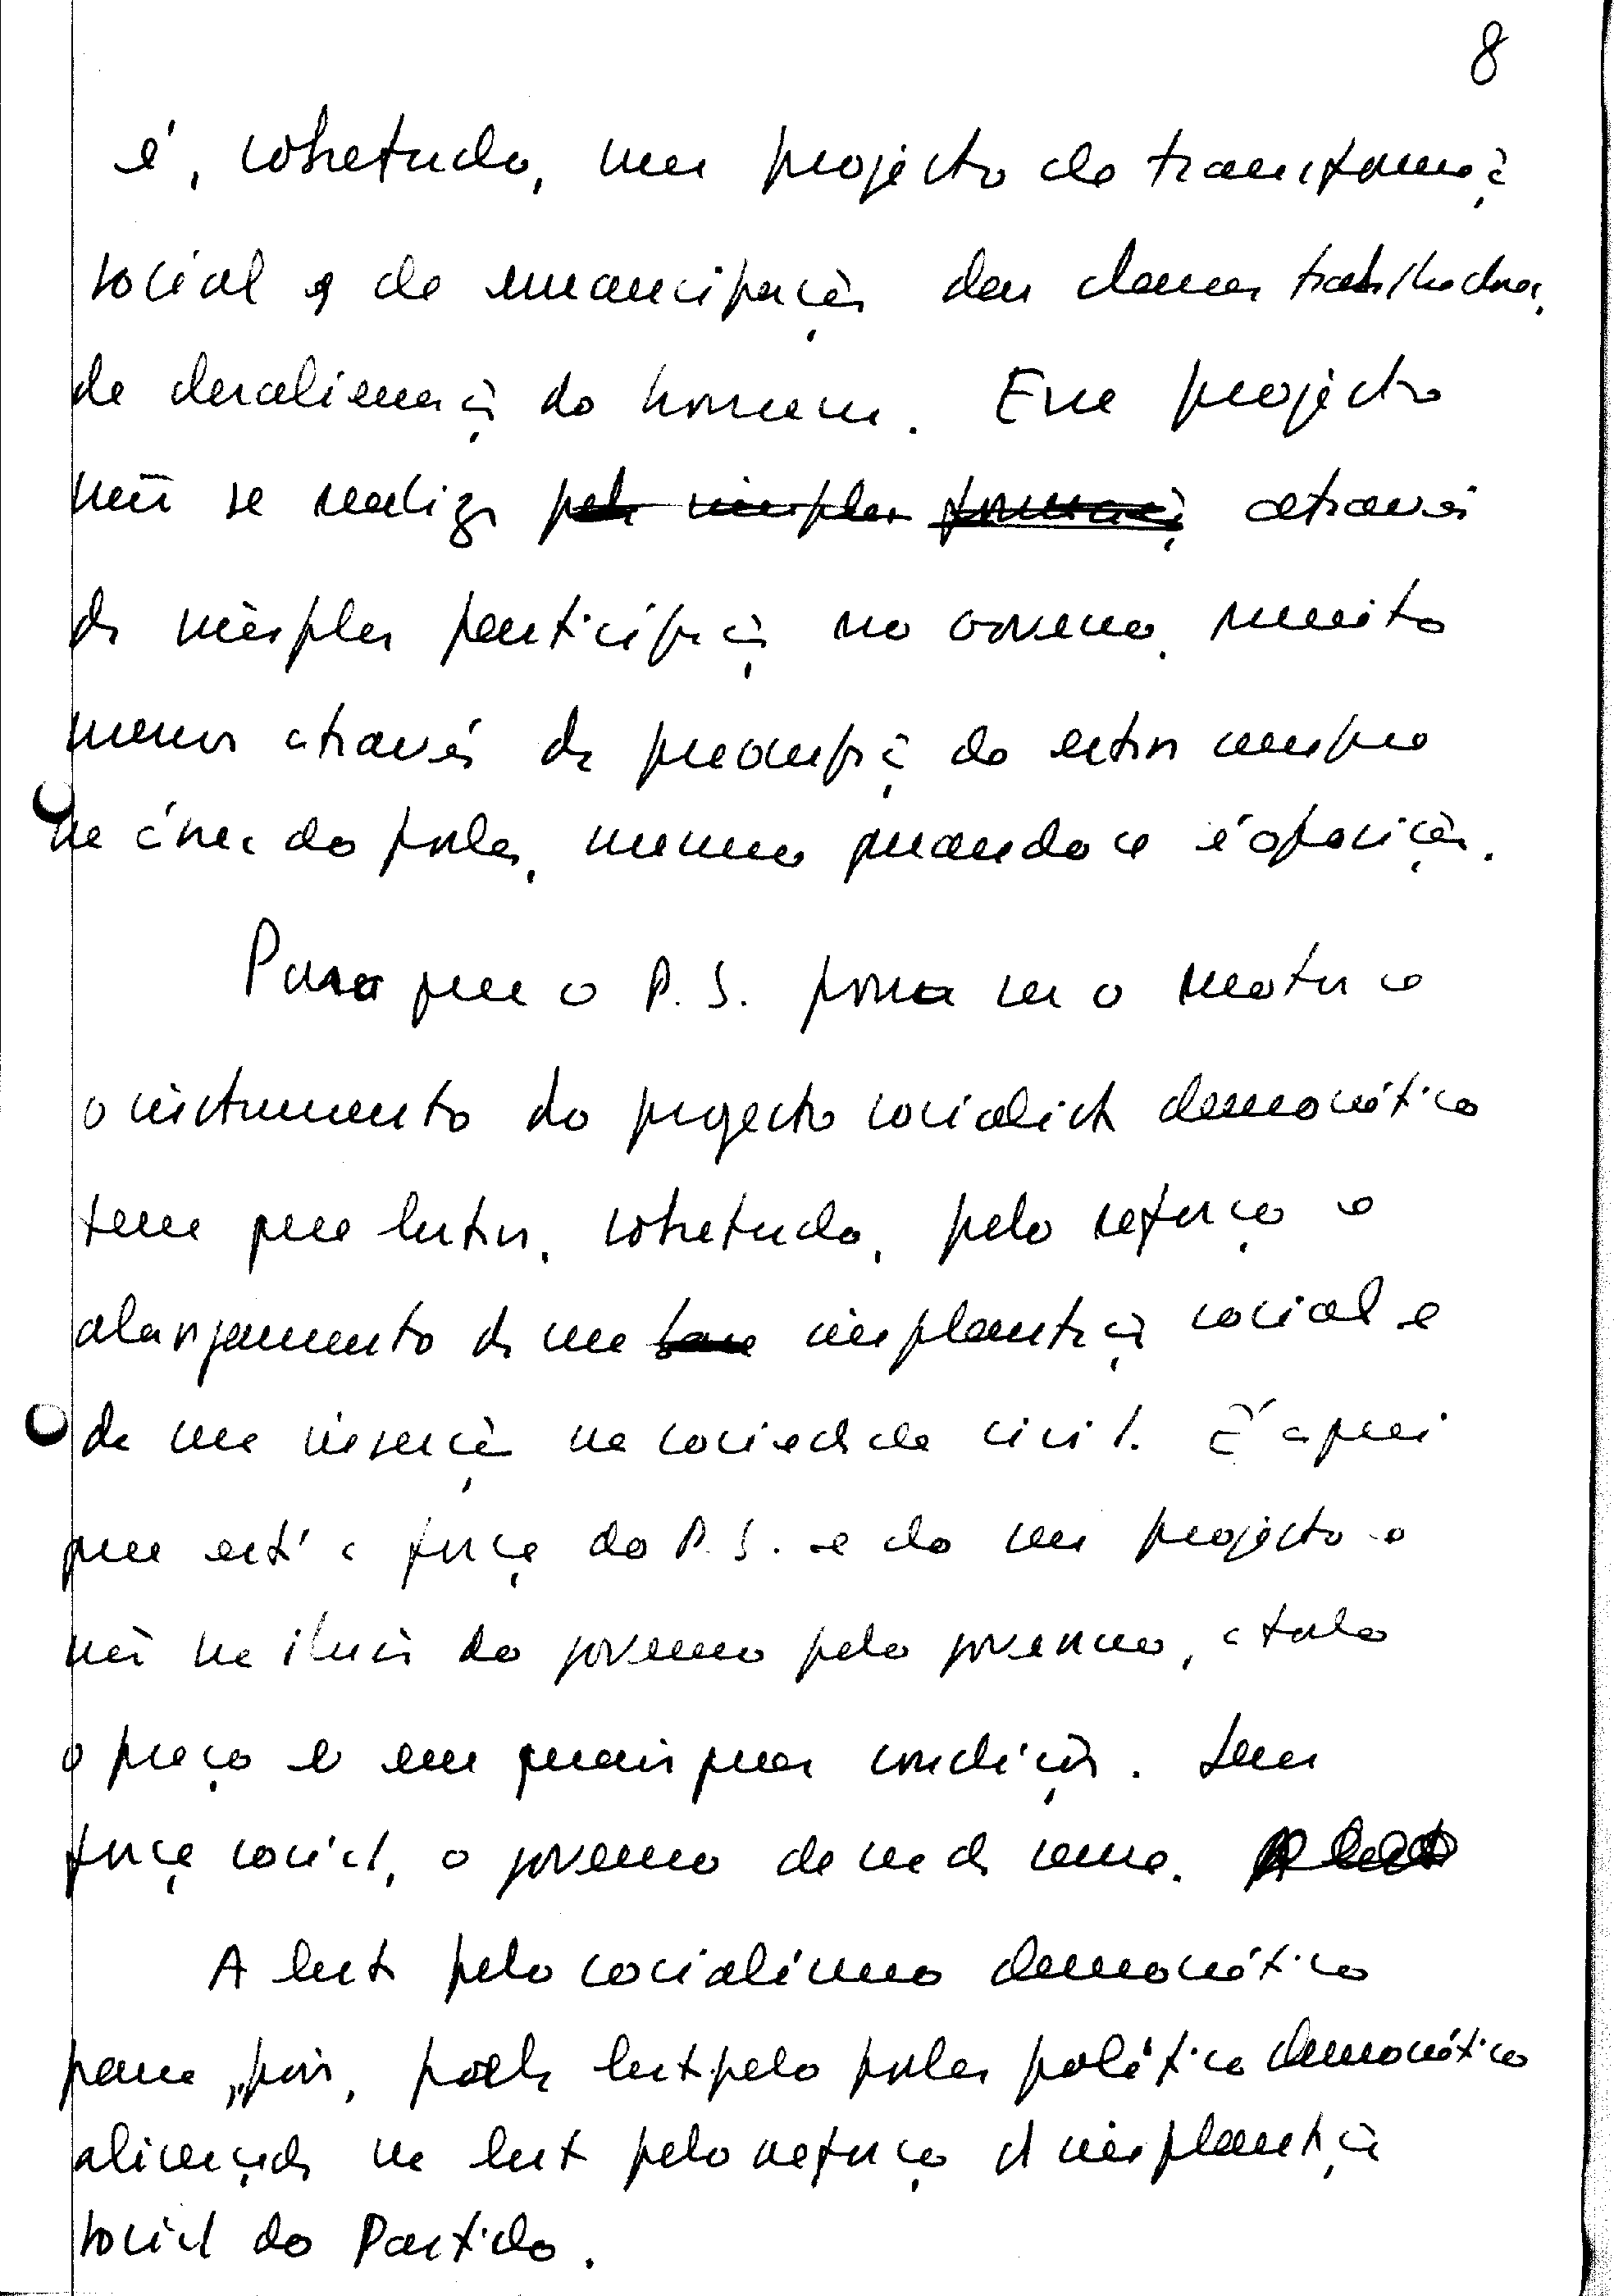 8
é, sobretudo, um projecto de transformação
social e de emancipação das classes trabalhadoras,
de desalienação do homem. Esse projecto
não se realiza pela simples formação através
da simples participação no governo, muito
menos através da preocupação de estar sempre
na área do poder, mesmo quando se é oposição.
Para que o P.S. possa ser o motor e
o instrumento do projecto socialista democrático
tem que lutar, sobretudo, pelo reforço e
alargamento da sua base implantação social e
da sua inserção na sociedade civil. É aqui
que está a força do P.S. e do seu projecto e
não na ilusão do governo pelo governo, a todo
o preço e em quaisquer condições. Sem
força social, o governo de nada serve. A luta
A luta pelo socialismo democrático
passa, pois, pela luta pelo poder político democrático
alicerçada na luta pelo reforço da implantação
social do Partido.